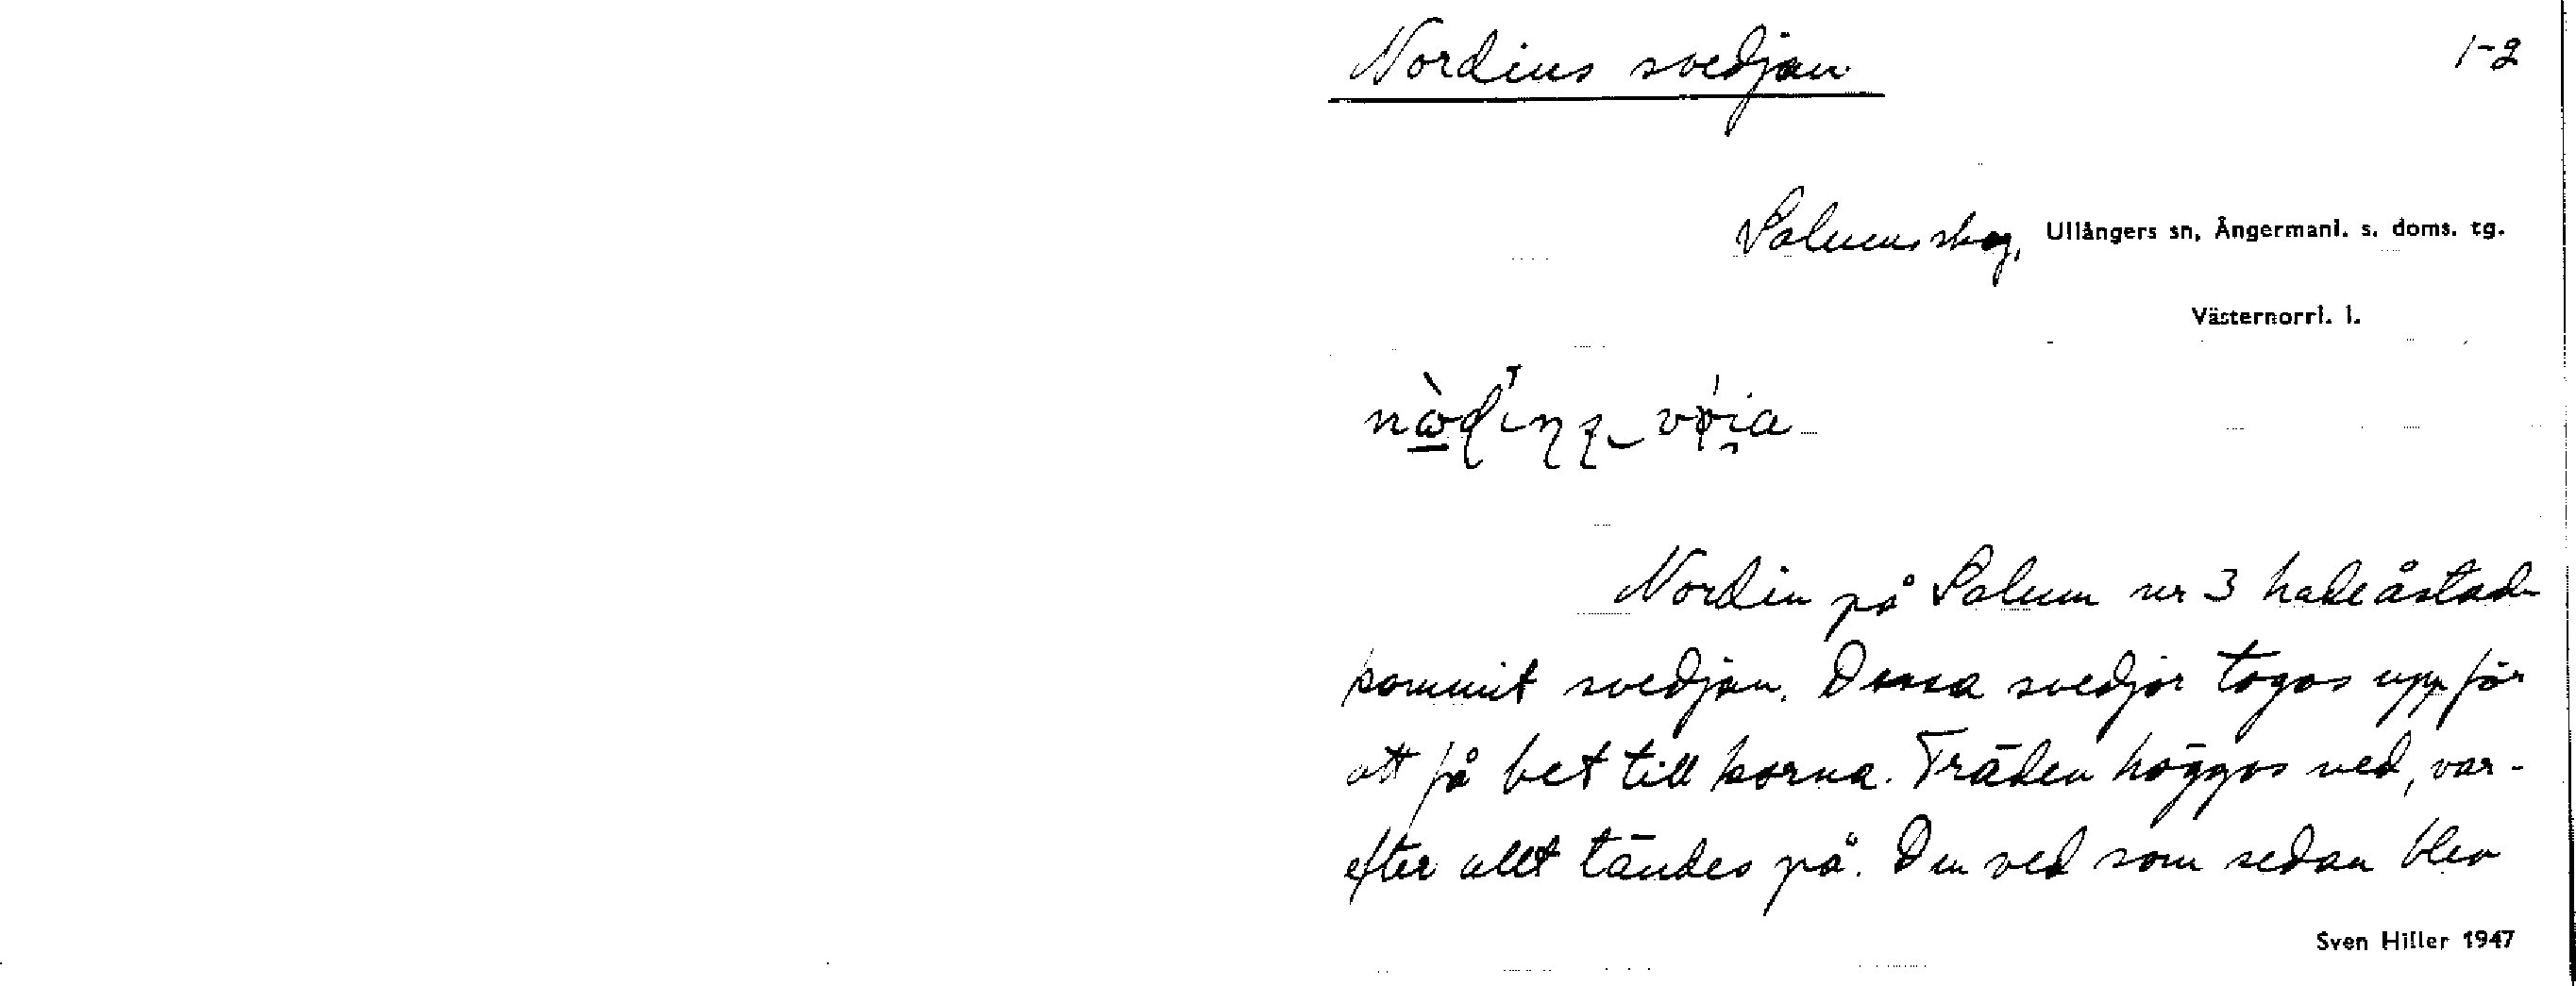 Nordins svedjan
1-2
Salumsskog, Ullångers sn, Ångermanl. s. doms. tg.
Västernorrl. l.
Nordin på Salum nr 3 hade åstad-
kommit svedjan. Dessa svedjor togos upp för
att få bet till korna. Träden höggos ned, var-
efter allt tändes på. Den ved som sedan blev
Sven Hiller 1947